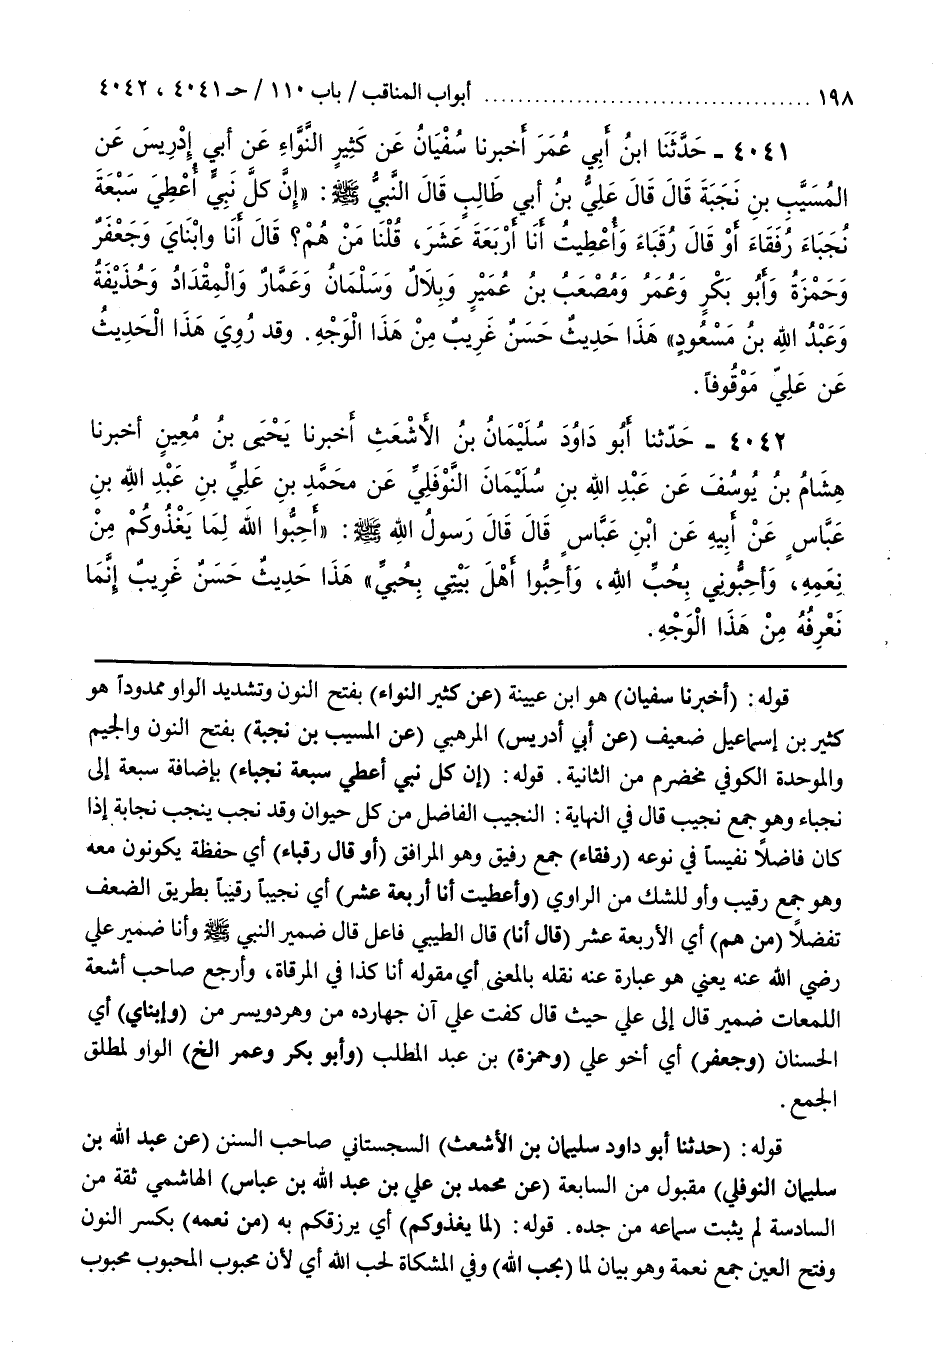 ١٩٨ ........................................ أبواب المناقب / باب ١١٠ / حـ ٤٠٤١ ، ٤٠٤٢
٤٠٤١ ـ حَدَّثَنَا ابنُ أَبِي عُمَرَ أَخبرنا سُفْيَانُ عَن كَثِيرٍ النَّوَّاءِ عَن أبي إدْرِيسَ عَن
المُسَيَّبِ بنِ نَجَبَةَ قَالَ قَالَ عَلِيُّ بنُ أبي طَالِبٍ قَالَ النَّبيُّ ﷺ: «إِنَّ كلَّ نَبيٍّ أُعْطِيَ سَبْعَةَ
نُجَبَاءَ رُفَقَاءَ أَوْ قَالَ رُقَبَاءَ وَأُعْطِيتُ أَنَا أَرْبَعَةَ عَشَرَ، قُلْنَا مَنْ هُمْ؟ قَالَ أَنَا وابْنَايَ وَجَعْفَرُ
وَحَمْزَةُ وَأَبُو بَكْرٍ وَعُمَرُ وَمُصْعَبُ بنُ عُمَيْرٍ وَبِلَالٌ وَسَلْمَانُ وَعَمَّارٌ وَالْمِقْدَادُ وَحُذَيْفَةُ
وَعَبْدُ اللهِ بنُ مَسْعُودٍ» هَذَا حَدِيثٌ حَسَنٌ غَرِيبٌ مِنْ هَذَا الْوَجْهِ. وقد رُوِيَ هَذَا الْحَدِيثُ
عَن عَلِيّ مَوْقُوفاً.
٤٠٤٢ ـ حَدّثنا أَبُو دَاوُدَ سُلَيْمَانُ بنُ الأَشْعَثِ أخبرنا يَحْيَى بنُ مُعِينٍ أخبرنا
هِشَامُ بنُ يُوسُفَ عَن عَبْدِ اللهِ بنِ سُلَيْمَانَ النَّوْفَلِيِّ عَن محَمَّدِ بنِ عَلِيِّ بنِ عَبْدِ اللهِ بنِ
عَبَّاسٍ عَنْ أَبِيهِ عَن ابْنِ عَبَّاسٍ قَالَ قَالَ رَسولُ اللهِ ﷺ: «أَحِبُّوا الله لِمَا يَغْذُوكُمْ مِنْ
نِعَمِهِ، وَأَحِبُّونِي بِحُبِّ اللهِ، وَأَحِبُّوا أَهْلَ بَيْتِي بِحُبيِّ» هَذَا حَدِيثٌ حَسَنٌ غَرِيبٌ إِنَّمَا
نَعْرِفُهُ مِنْ هَذَا الْوَجْهِ.
قوله: (أخبرنا سفيان) هو ابن عيينة (عن كثير النواء) بفتح النون وتشديد الواو ممدوداً هو
كثير بن إسماعيل ضعيف (عن أبي أدريس) المرهبي (عن المسيب بن نجبة) بفتح النون والجيم
والموحدة الكوفي مخضرم من الثانية. قوله: (إن كل نبي أعطي سبعة نجباء) بإضافة سبعة إلى
نجباء وهو جمع نجيب قال في النهاية: النجيب الفاضل من كل حيوان وقد نجب ينجب نجابة إذا
كان فاضلاً نفيساً في نوعه (رفقاء) جمع رفيق وهو المرافق (أو قال رقباء) أي حفظة يكونون معه
وهو جمع رقيب وأو للشك من الراوي (وأعطيت أنا أربعة عشر) أي نجيباً رقيباً بطريق الضعف
تفضلاً (من هم) أي الأربعة عشر (قال أنا) قال الطيبي فاعل قال ضمير النبي ﷺ وأنا ضمير علي
رضي الله عنه يعني هو عبارة عنه نقله بالمعنى أي مقوله أنا كذا في المرقاة، وأرجع صاحب أشعة
اللمعات ضمير قال إلى علي حيث قال كفت علي آن جهارده من وهردويسر من (وإبناي) أي
الحسنان (وجعفر) أي أخو علي (وحمزة) بن عبد المطلب (وأبو بكر وعمر الخ) الواو لمطلق
الجمع.
قوله: (حدثنا أبو داود سليمان بن الأشعث) السجستاني صاحب السنن (عن عبد الله بن
سليمان النوفلي) مقبول من السابعة (عن محمد بن علي بن عبد الله بن عباس) الهاشمي ثقة من
السادسة لم يثبت سماعه من جده. قوله: (لما يغذوكم) أي يرزقكم به (من نعمه) بكسر النون
وفتح العين جمع نعمة وهو بيان لما (بحب الله) وفي المشكاة لحب الله أي لأن محبوب المحبوب محبوب